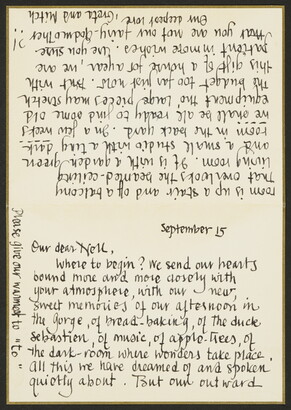 September 15
Our dear Nell,
Where to begin? We send our hearts
bound more and more closely with
your atmosphere, with our new,
sweet memories of our afternoon in
the gorge, of bread-baking, of the duck
sebastien, of music, of apple-trees, of
the dark-room where wonders take place.
All this we have dreamed of and spoken
quietly about. But our outward
room is up a stair and off a balcony
That overlooks the beamed-ceiling
living room. It is with a garden green
and a small studio with a tiny dark-
room in the back yard. In a few weeks
we shall be all ready to find some old
equipment tho' large pieces may stretch
the budget too far just now. But with
this gift of a house for a year, we are
patient in more wishes. Are you sure
that you are not our fairy-godmother ?!
Our deepest love, Greta and Mitch
Please give our warmest to